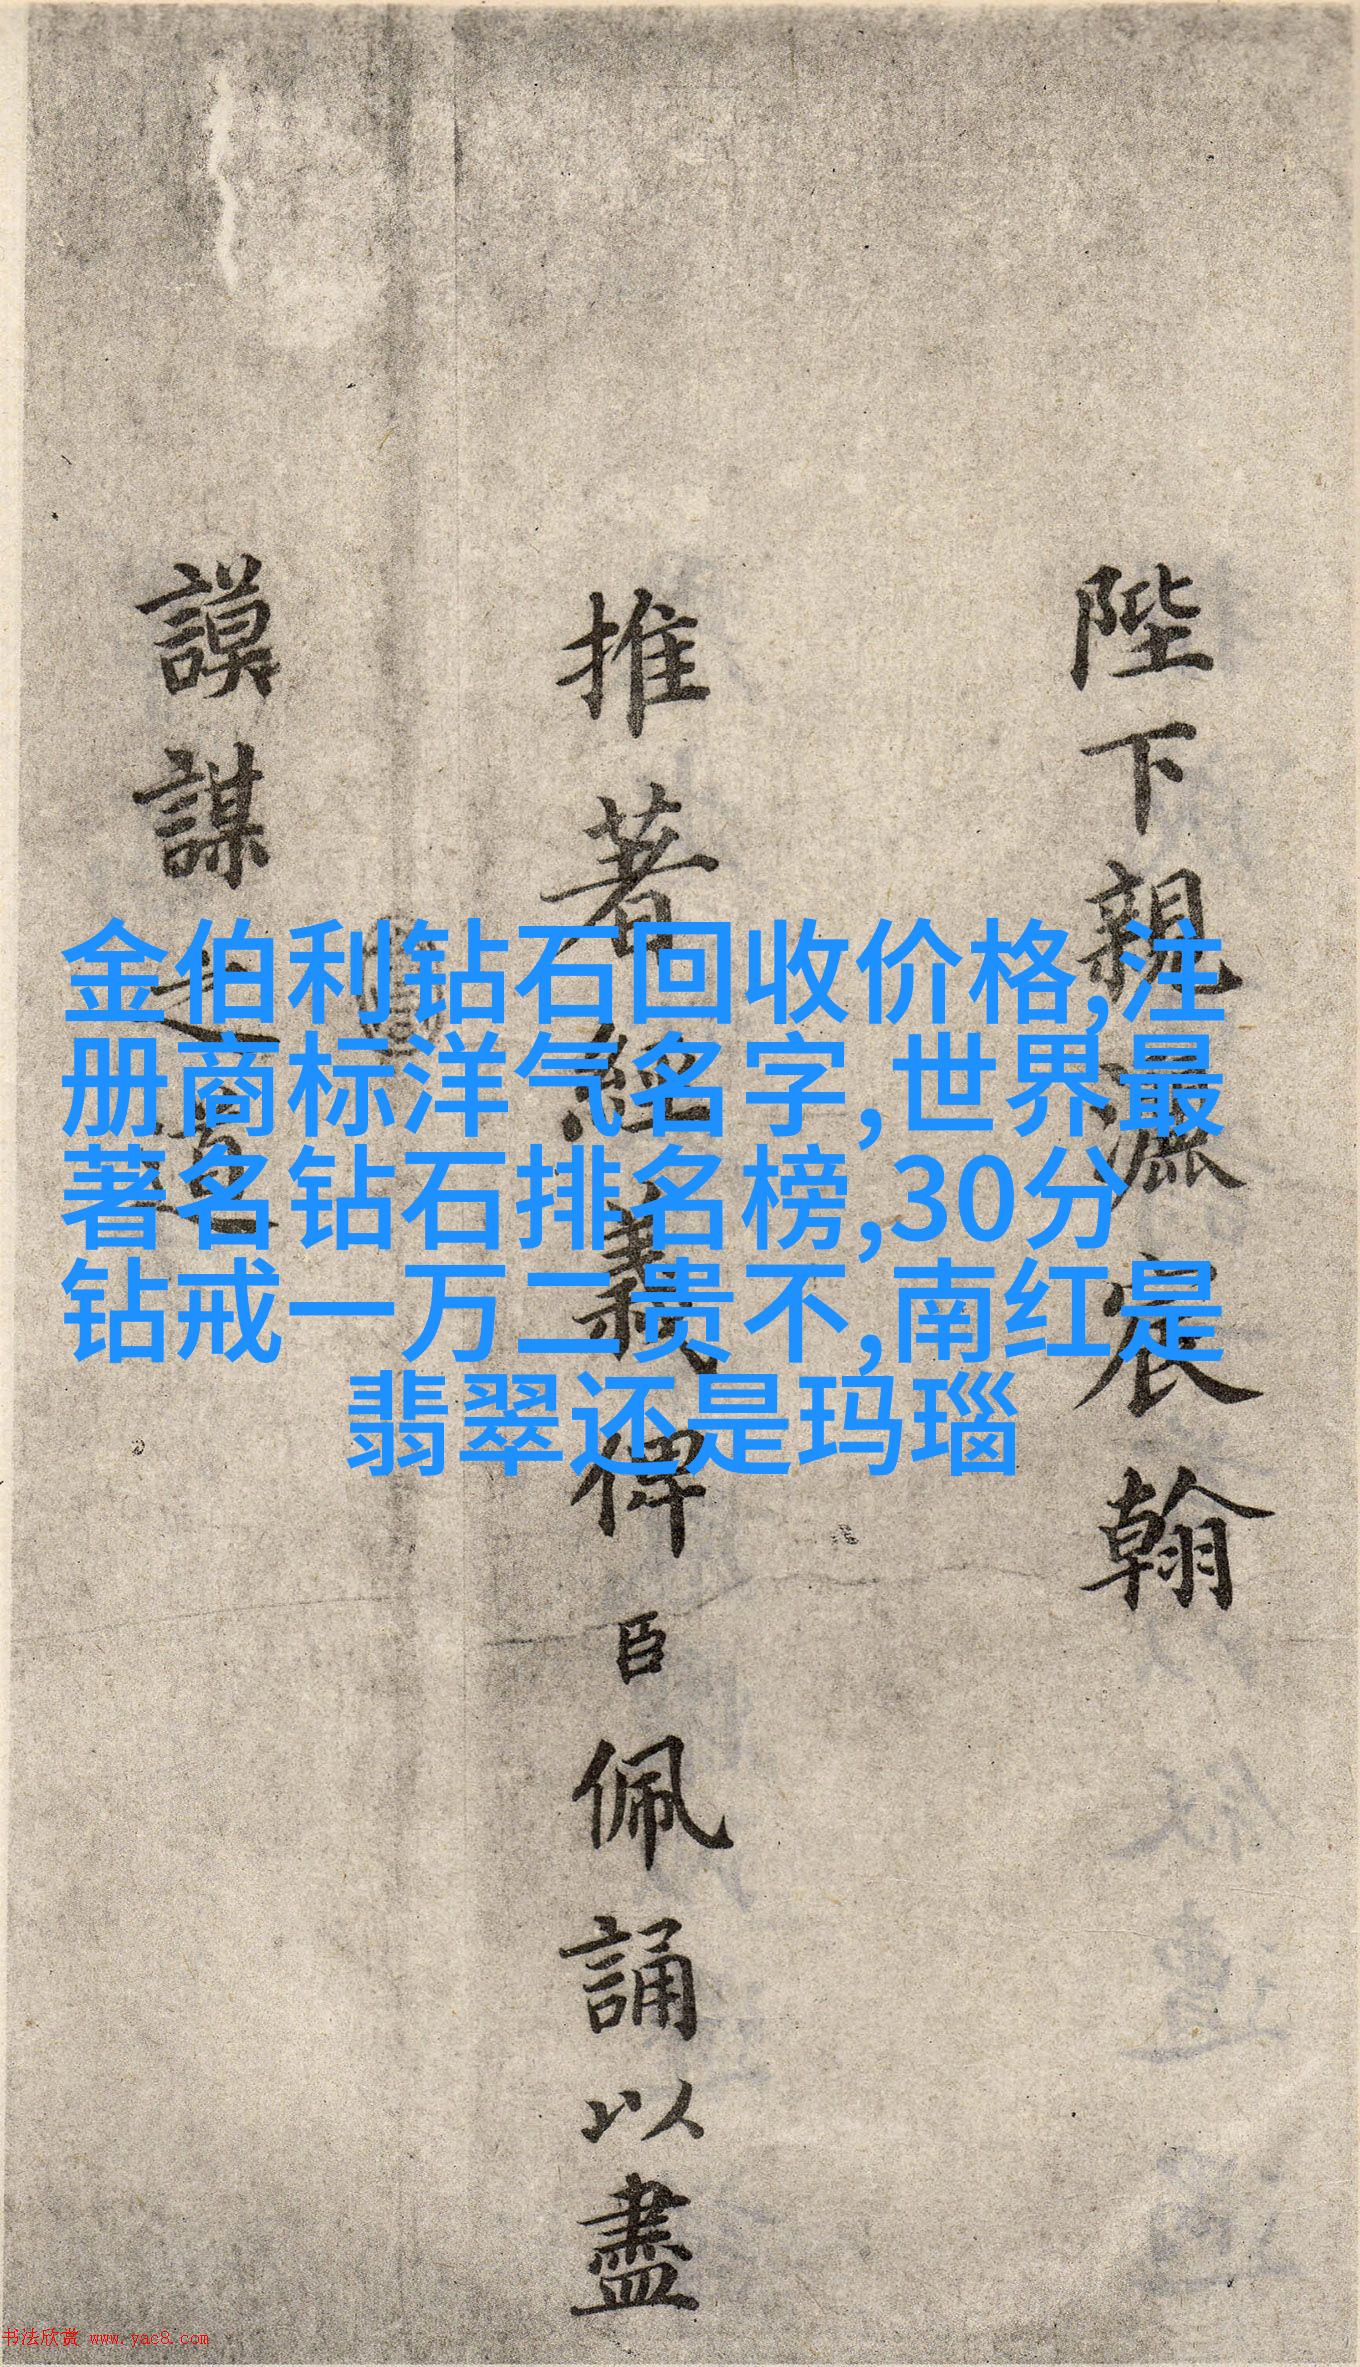 陛下親灑宸翰
推著經義俾臣佩誦以盡
謨謀之道
金伯利钻石回收价格,注
册商标洋气名字,世界最
著名钻石排名榜,30分
钻戒一万二贵不,南红是
翡翠还是玛瑙
书法欣赏 www.yac8.com